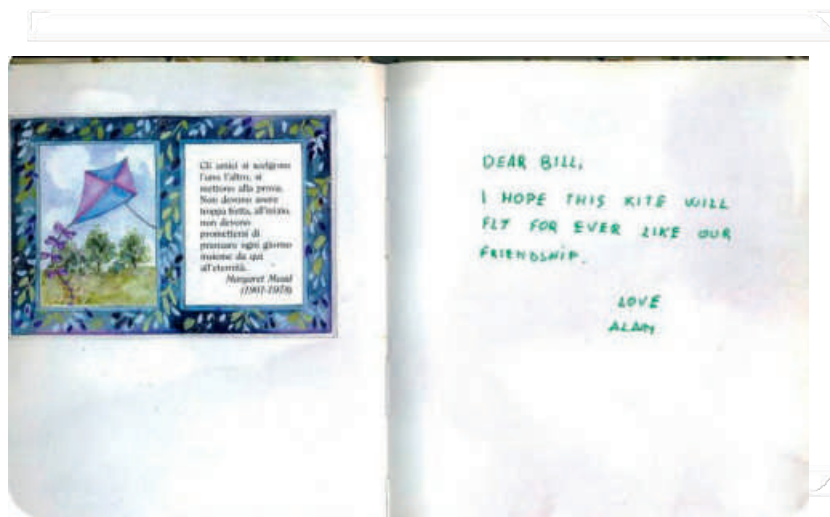 Gli amici si scelgono
l'uno l'altro, si
mettono alla prova.
Non devono avere
troppa fretta, all'inizio,
non devono
promettersi di
pranzare ogni giorno
insieme da qui
all'eternità.
Margaret Mead
(1901-1978)
DEAR BILL,
I HOPE THIS KITE WILL
FLY FOR EVER LIKE OUR
FRIENDSHIP.
LOVE
ALAN